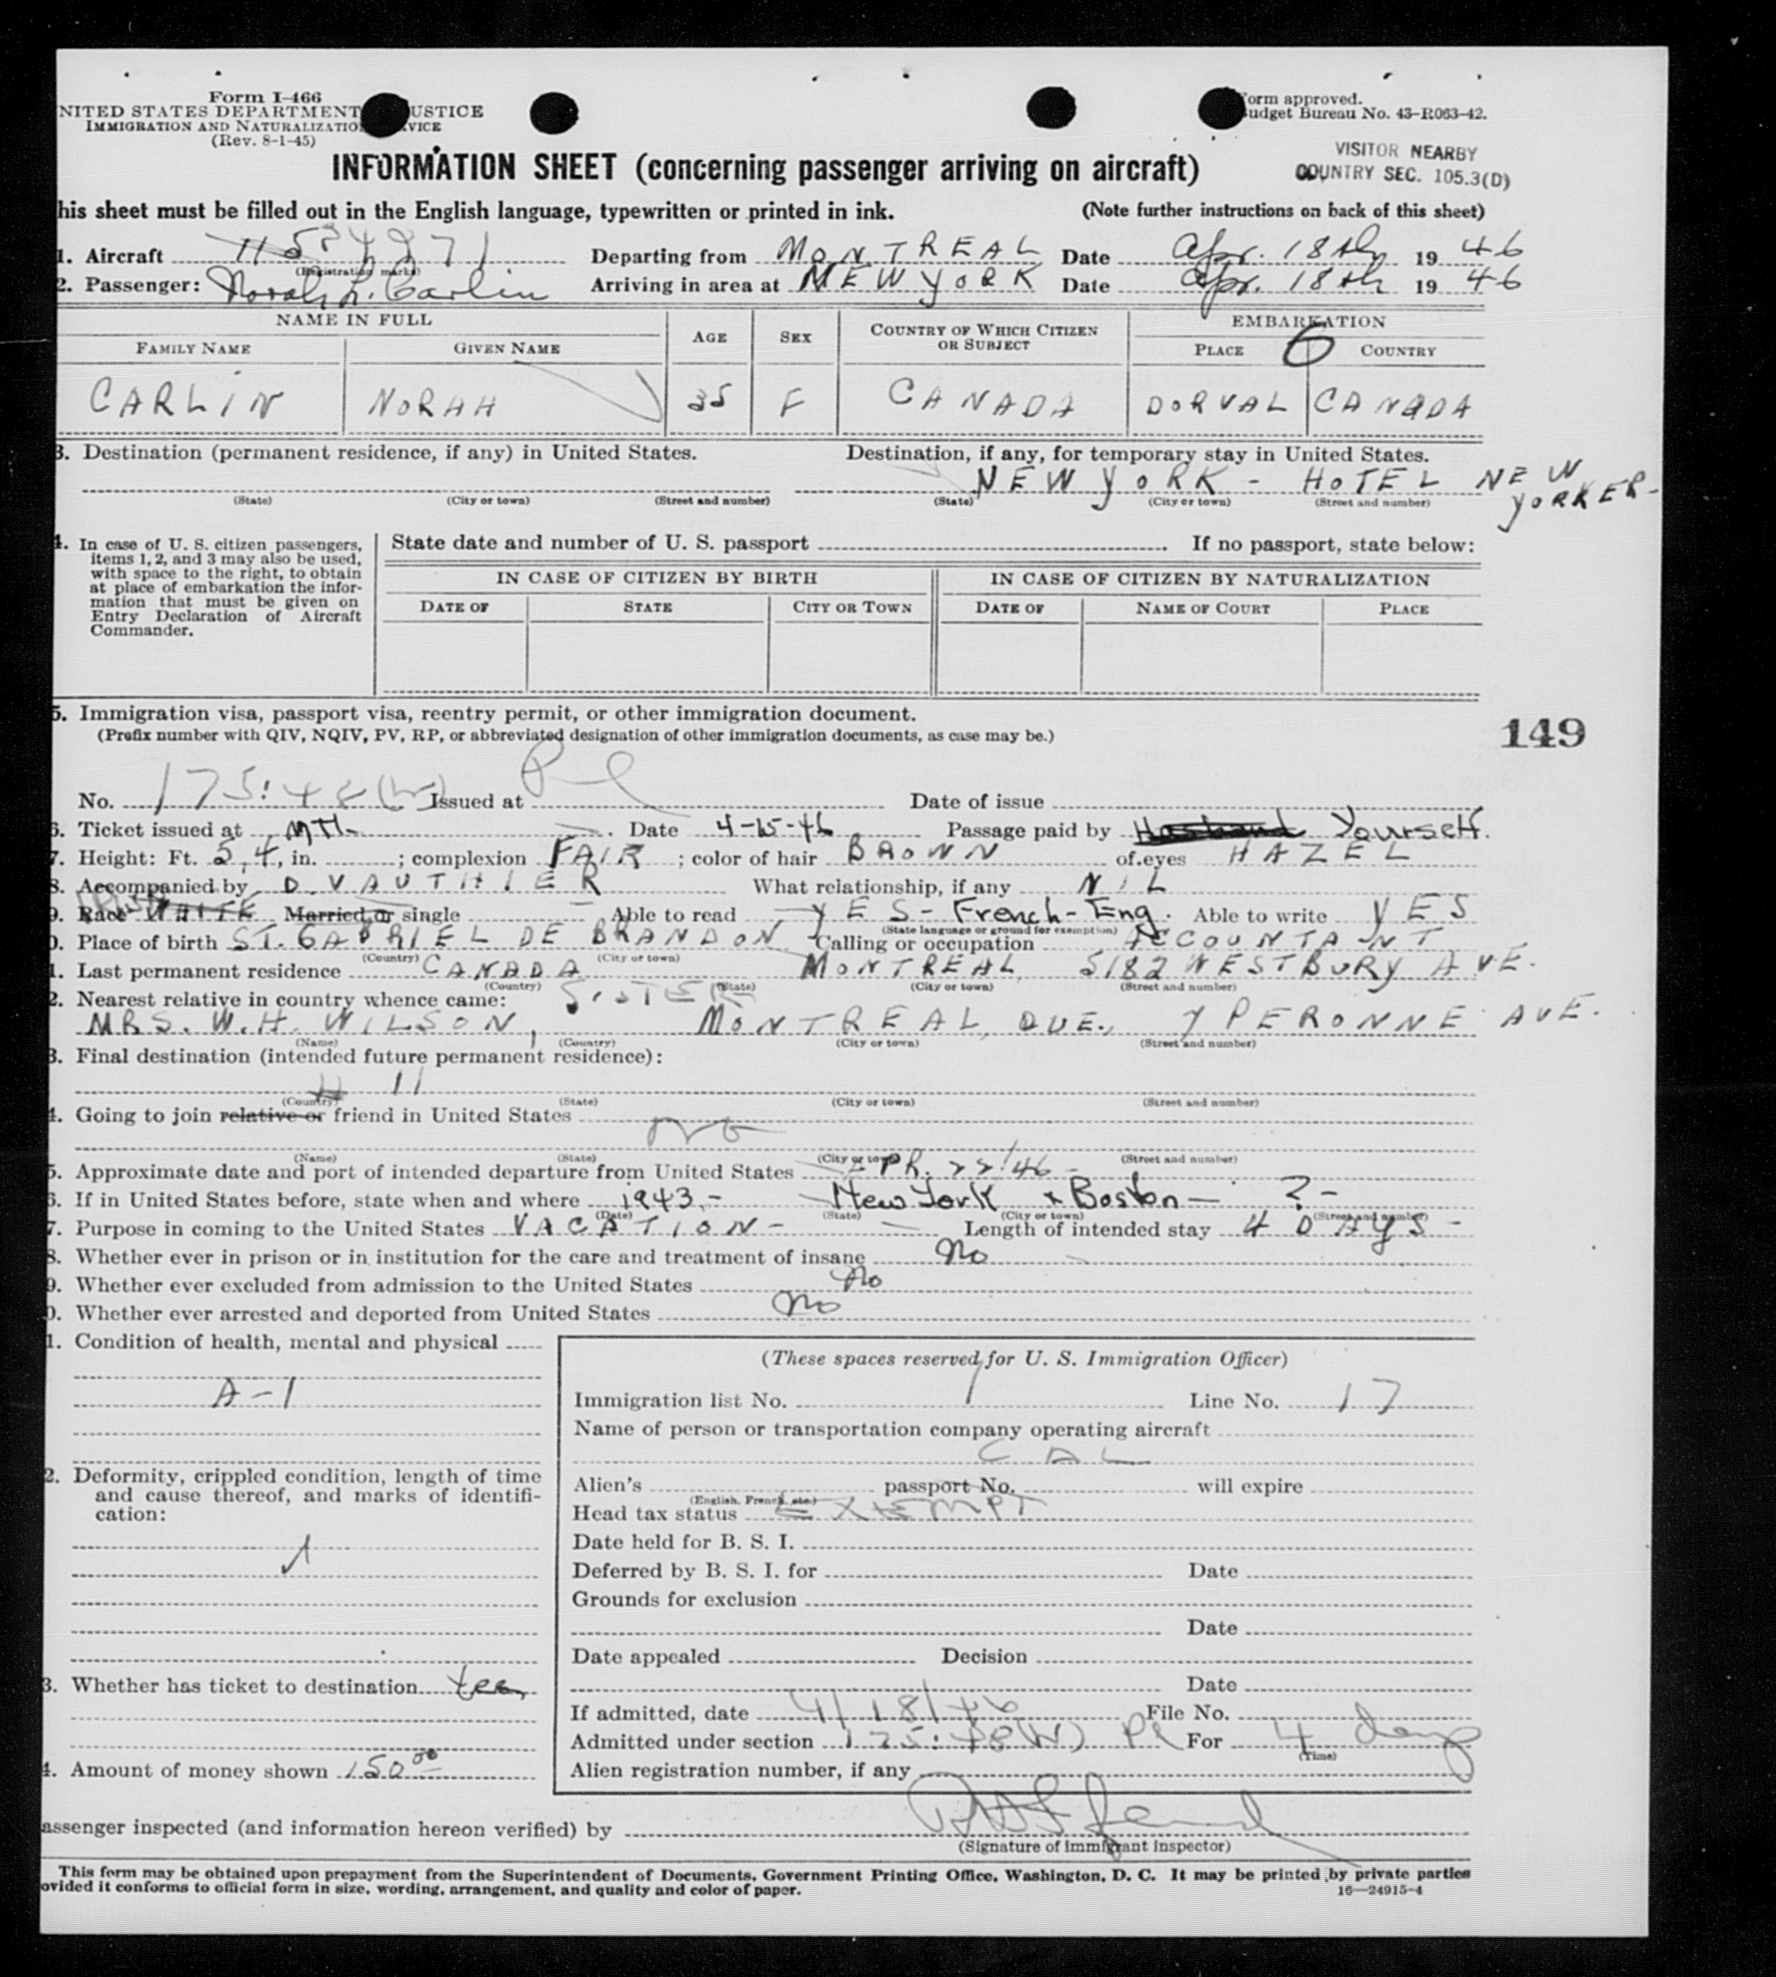 Form I-466
NITED STATES DEPARTMENT USTICE
IMMIGRATION AND NATURALIZATIO VICE
(Rev. 8-1-45)
orm approved.
udget Bureau No. 43-R063-42.
VISITOR NEARBY
COUNTRY SEC. 105.3(D)
INFORMATION SHEET (concerning passenger arriving on aircraft)
his sheet must be filled out in the English language, typewritten or printed in ink. (Note further instructions on back of this sheet)
1. Aircraft Departing from MONTREAL Date Apr. 18th 1946
(Registration marks)
2. Passenger: Norah L. Carlin Arriving in area at NEW YORK Date Apr. 18th 1946
NAME IN FULL AGE SEX COUNTRY OF WHICH CITIZEN OR SUBJECT EMBARKATION
FAMILY NAME GIVEN NAME PLACE 6 COUNTRY
CARLIN NORAH 35 F CANADA DORVAL CANADA
3. Destination (permanent residence, if any) in United States. Destination, if any, for temporary stay in United States.
NEW YORK - HOTEL NEW YORKER-
(State) (City or town) (Street and number) (State) (City or town) (Street and number)
4. In case of U. S. citizen passengers, items 1, 2, and 3 may also be used, with space to the right, to obtain at place of embarkation the information that must be given on Entry Declaration of Aircraft Commander.
State date and number of U. S. passport If no passport, state below:
IN CASE OF CITIZEN BY BIRTH IN CASE OF CITIZEN BY NATURALIZATION
DATE OF STATE CITY OR TOWN DATE OF NAME OF COURT PLACE
5. Immigration visa, passport visa, reentry permit, or other immigration document.
(Prefix number with QIV, NQIV, PV, RP, or abbreviated designation of other immigration documents, as case may be.)
149
No. 175:48(W) Issued at Date of issue
6. Ticket issued at MTL- Date 4-15-46 Passage paid by Husband Yourself.
7. Height: Ft. 5, 4, in. ; complexion FAIR ; color of hair BROWN of eyes HAZEL
8. Accompanied by D. VAUTHIER What relationship, if any NIL
9. Race WHITE Married or single Able to read YES - French - Eng. Able to write YES
(State language or ground for exemption)
0. Place of birth ST. GABRIEL DE BRANDON Calling or occupation ACCOUNTANT
(Country) (City or town)
1. Last permanent residence CANADA MONTREAL 5182 WESTBURY AVE.
(Country) (State) (City or town) (Street and number)
2. Nearest relative in country whence came: SISTER
MRS. W. H. WILSON, MONTREAL, QUE., 7 PERONNE AVE.
(Name) (Country) (City or town) (Street and number)
3. Final destination (intended future permanent residence):
(Country) (State) (City or town) (Street and number)
4. Going to join relative or friend in United States
No
(Name) (State) (City or town) (Street and number)
5. Approximate date and port of intended departure from United States APR. 22/46 -
6. If in United States before, state when and where 1943 - New York & Boston - ? -
(Date) (State) (City or town) (Street and number)
7. Purpose in coming to the United States VACATION - Length of intended stay 4 DAYS -
8. Whether ever in prison or in institution for the care and treatment of insane No
9. Whether ever excluded from admission to the United States No
0. Whether ever arrested and deported from United States No
1. Condition of health, mental and physical
A-1
2. Deformity, crippled condition, length of time and cause thereof, and marks of identification:
3. Whether has ticket to destination Yes
4. Amount of money shown 150 00
(These spaces reserved for U. S. Immigration Officer)
Immigration list No. 1 Line No. 17
Name of person or transportation company operating aircraft
CAL
Alien's passport No. will expire
(English, French, etc.)
Head tax status EXEMPT
Date held for B. S. I.
Deferred by B. S. I. for Date
Grounds for exclusion
Date
Date appealed Decision
Date
If admitted, date 4/18/46 File No.
Admitted under section 175:48(W) Pl For 4 days
(Time)
Alien registration number, if any
assenger inspected (and information hereon verified) by
(Signature of immigrant inspector)
This form may be obtained upon prepayment from the Superintendent of Documents, Government Printing Office, Washington, D. C. It may be printed by private parties
ovided it conforms to official form in size, wording, arrangement, and quality and color of paper. 16—24915-4